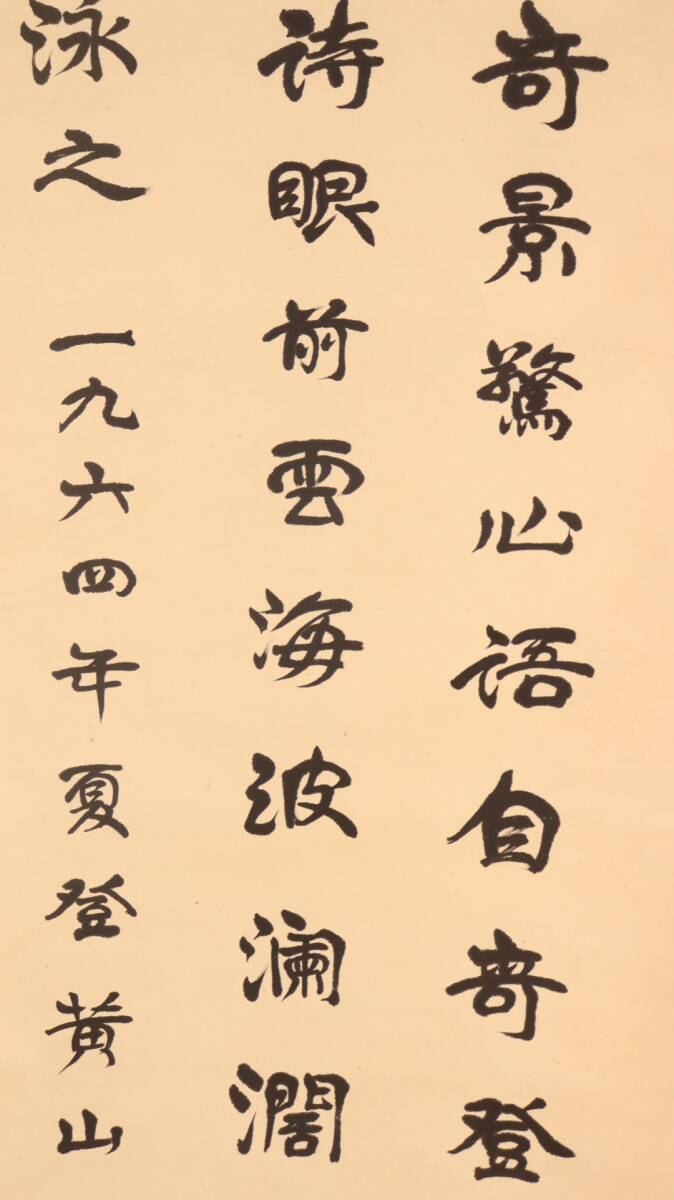 奇景驚心语自奇登
诗眼前雲海波澜濶
泳之 一九六四年夏登黄山